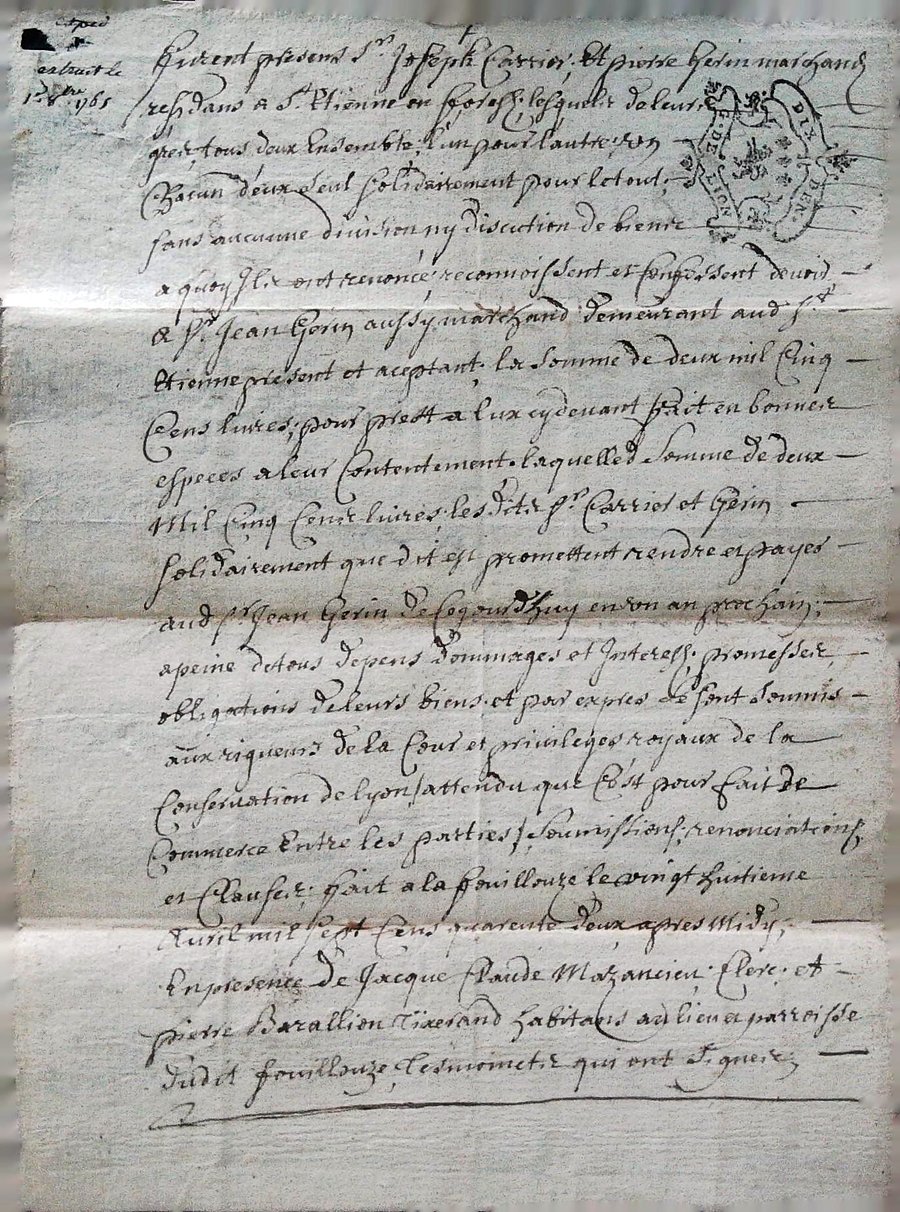 extrait le
1765
furent presens Sr. Joseph Carrier, Et pierre Gerin marchands
residans a St. Etienne en fforesz, lesquels de leurs
grez, tous deux Ensemble, l'un pour l'autre, un
Chacun d'eux seul solidairement pour le tout,
sans aucunne division ny discution de biens
a quoy Ils ont renoncé, reconnoissent et Confessent devoir
a Sr. Jean Gerin aussy marchand demeurant aud St.
Etienne present et aceptant, la somme de deux mil Cinq
Cens livres, pour prest a lux cydevant fait en bonnes
especes a leur Contentement. laquelled somme de deux
Mil Cinq Cens livres, les dits Srs. Carrier et Gerin
solidairement que dit est promettent rendre et payer
aud Sr. Jean Gerin de Cejourd'huy en un an prochain,
a peine de tous depens dommages et Interests, promesses,
obligations de leurs biens et par expres se sont soumis
aux rigueurs de la Cour et privileges royaux de la
Conservation de lyon / attendu que C'est pour fait de
Commerce Entre les parties / soumissions, renonciations,
et Clauses; fait a la fouillouze le vingt huitieme
Avril mil sept Cens quarente deux apres Midy,
En presence de Jacque Claude Mazancieu, Clerc, et
pierre Barallion Tixerand habitans au lieu et parroisse
dudit fouillouze, Tesmoins qui ont signez
G. DE LION
DIX DEN.